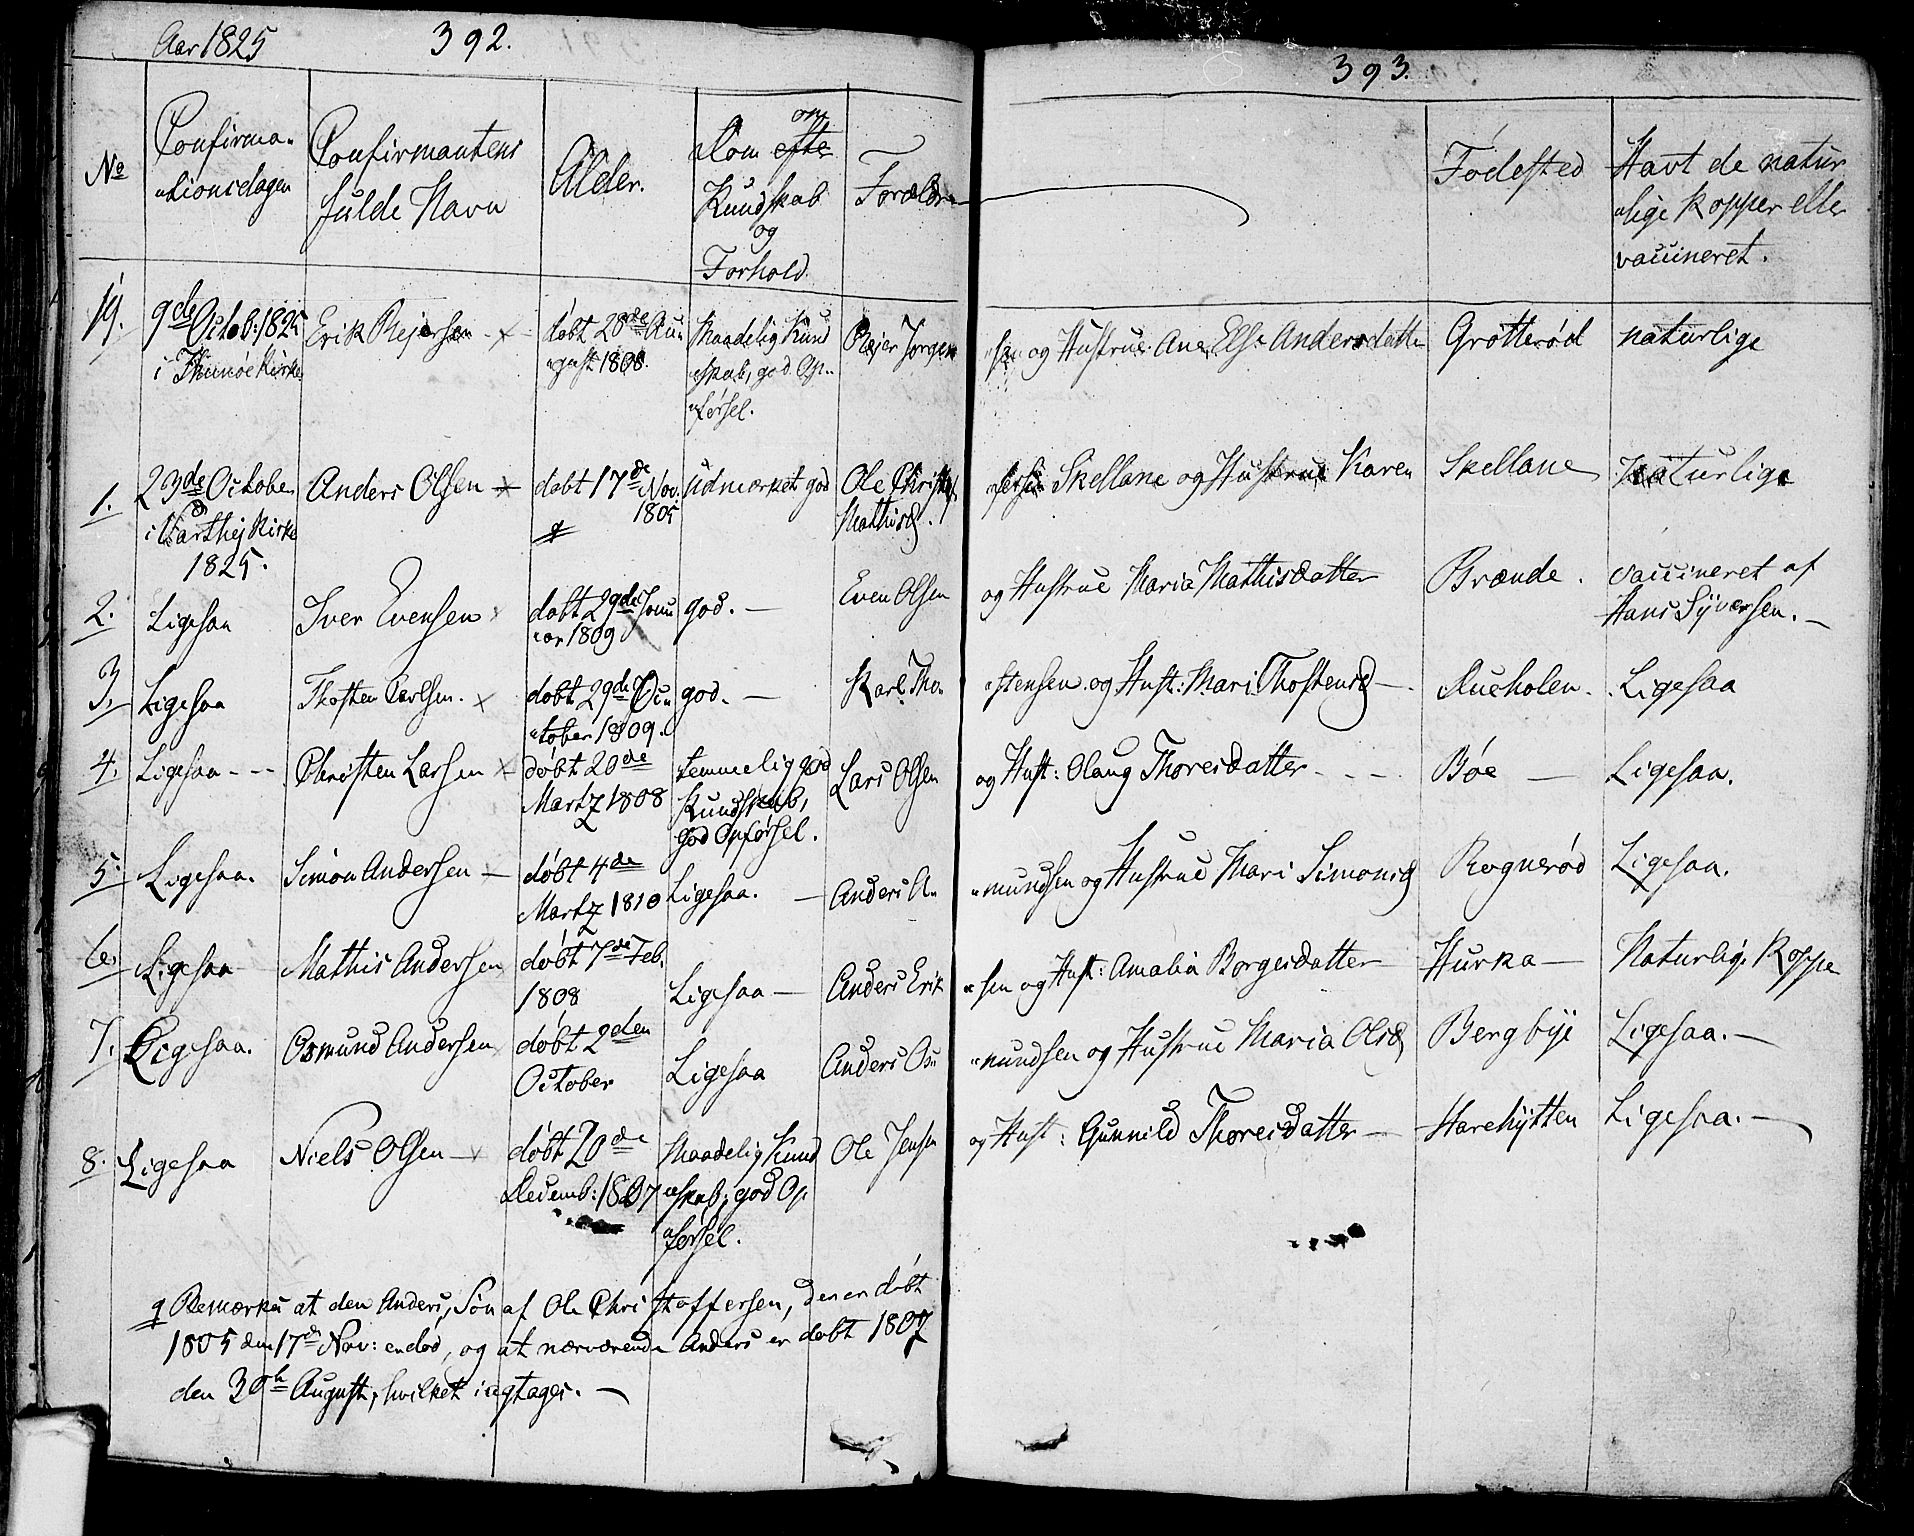 Aar 1825 392.
No
Confirma-
tionsdagen
Confirmantens
fulde Navn
Alder.
Dom efter om
Kundskab
og
Forhold.
Forældre
19. 9de Octob: 1825
i Thunøe Kirke
Erik Rejersen
døbt 28de Au-
gust 1808.
Maadelig Kund
skab, god Op-
førsel.
Rejer Jørgen
1. 23de October
i Varthej Kirke
1825.
Anders Olsen
døbt 17de Nov.
1805
udmærket god
Ole Christof
Mathisd.
2. Ligesaa
Iver Evensen
døbt 29de Janu
ar 1809
god.
Even Olsen
3. Ligesaa
Thosten Carlsen.
døbt 29de Oc-
tober 1809.
god.
Karl Tho-
4. Ligesaa
Christen Larsen
døbt 20de
Martz 1808
temmelig god
Kundskab,
god Opførsel.
Lars Olsen
5. Ligesaa.
Simon Andersen
døbt 4de
Martz 1810
Ligesaa.
Anders A-
6. Ligesaa
Mathis Andersen
døbt 7de Feb.
1808
Ligesaa
Anders Erik
7. Ligesaa.
Osmund Andersen
døbt 2den
October
Ligesaa
Anders Os-
8. Ligesaa
Niels Olsen
døbt 20de
Decemb: 1807
Maadelig Kund
skab; god Op
førsel.
Ole Jensen
Bemærkes at den Anders, Søn af Ole Christoffersen, der er døbt
1805 den 17de Nov: er død, og at nærværende Anders er døbt 1807
den 30te August, hvilket iagtages.
393.
Fødested
Havt de natur
lige Kopper eller
vaccineret.
sen og Hustrue Ane Else Andersdatter Grøtterød naturlige
fersen Skellane og Hustrue Karen Skellane naturlige
og Hustrue Maria Mathisdatter Brænde. vaccineret af
Hans Syversen.
stensen og Hust: Mari Thostensd Ligesaa
og Hust: Olaug Thoresdatter Bøe Ligesaa.
mundsen og Hustrue Mari Simonsd Rognerød Ligesaa.
sen og Hust: Amalia Borgersdatter Hurka Naturlige Koppe
mundsen og Hustrue Maria Olsd Bergbye Ligesaa.
og Hust: Gunnild Thoresdatter Harehytten Ligesaa.